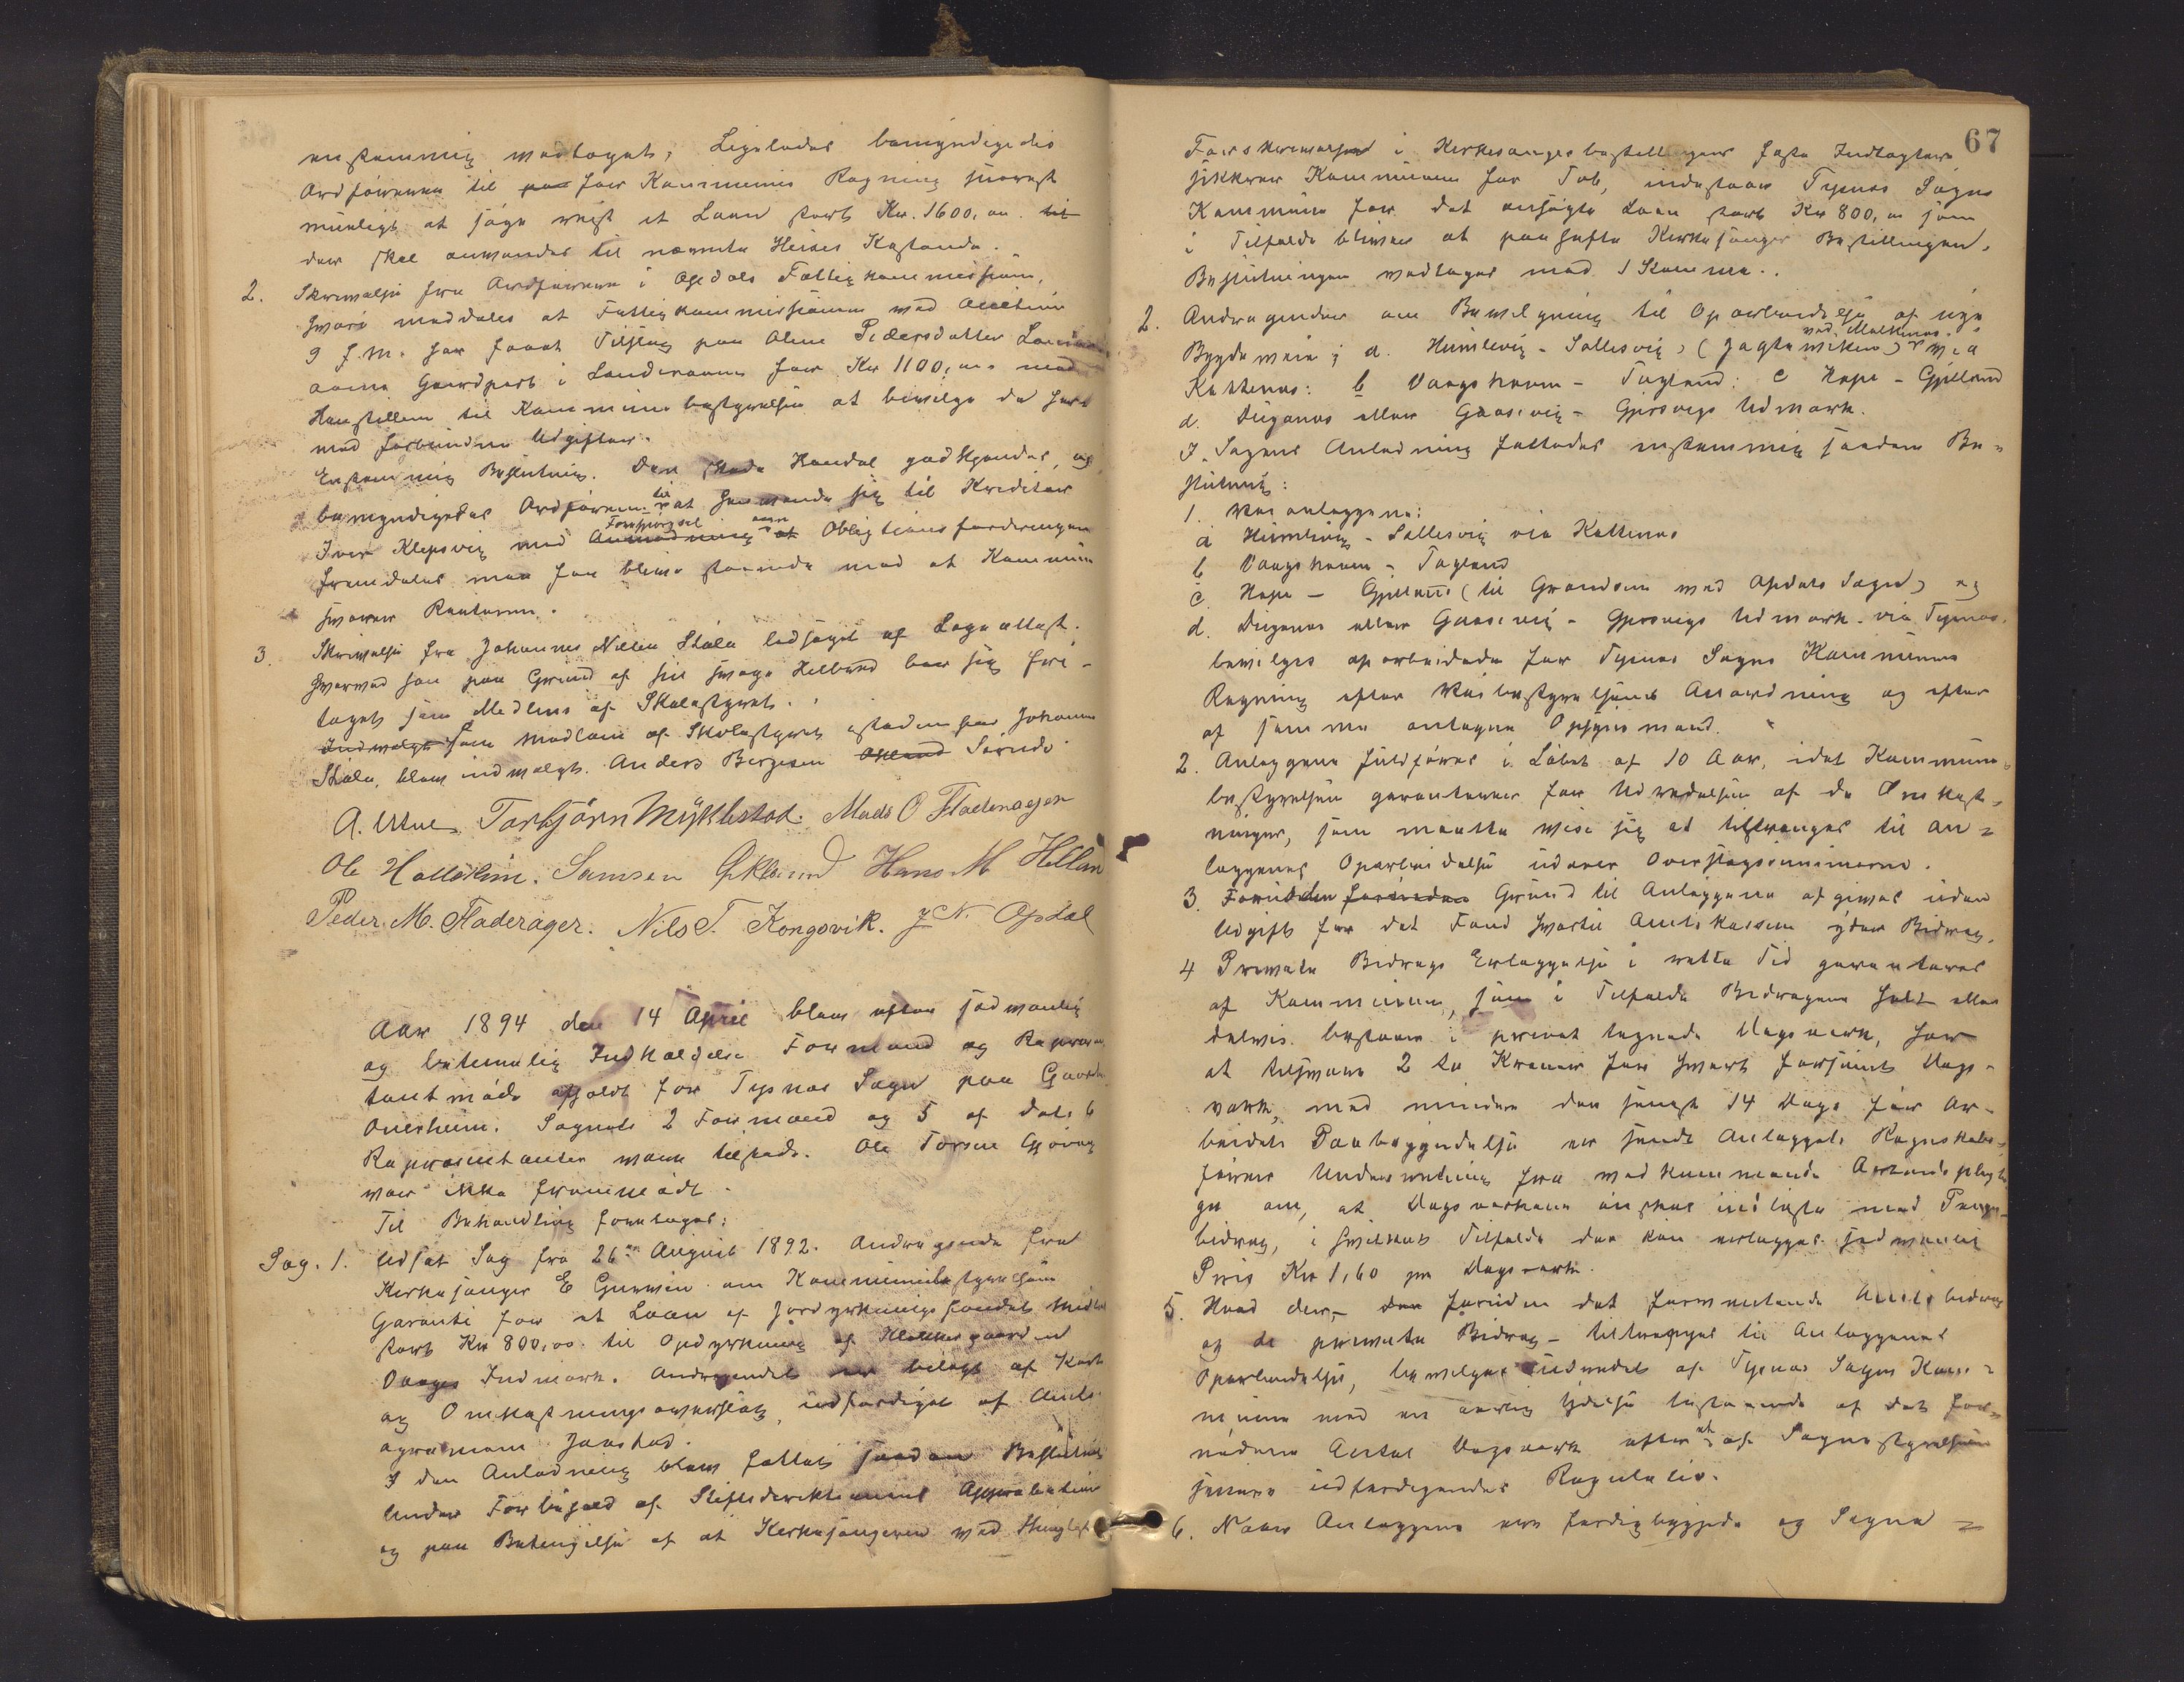 enstemmig vedtaget, Ligeledes bemyndigedes
Ordföreren til for Kommunens Regning snarest
muligt at söge reist et Laan stort Kr. 1600,00
der skal anvendes til nævnte Heises Kostende.
2. Skrivelse fra Ordföreren i Opdals Fattigkommission,
hvori meddeles at Fattigkommissionen ved Auktion
9 f.M. har faaet Tilslag paa Aline Pedersdatter
Gaardpart i for Kr 1100,00 med
Henstillen til Kommunebestyrelsen at bevilge de her
med forbundne Udgifter.
Enstemmig Beslutning. Den skede Handel godkjendes, og
bemyndigedes Ordföreren til at henvende sig til Kreditor
Iver Klepsvig med Forespörgsel om Obligtionsfordringen
fremdeles maa faa blive staaende mod at Kommunen
svarer Renterne.
3. Skrivelse fra Johannes Nilsen Skåle ledsaget af Lægeattest.
hvorved han paa Grund af sin svage Helbred beer sig fri-
taget som Medlem af Skolestyret.
Indvalgt som Medlem af Skolestyret istedenfor Johannes
Skåle, blev indvalgt. Anders Bergesen Økland Sörnde
A. Utne Torbjörn Myklestad. Mads O Flaterager
Ole Hallekim. Samson Økland Hans M Helland
Peder. M. Fladerager. Nils T. Kongsvik. J N. Opdal
Aar 1894 den 14 April blev efter sedvanlig
og betimelig Indkaldelse Formand og Repræsen
tantmöde afholdt for Tysnes Sogn paa Gaarden
Onerheim. Sognets 2 Formænd og 5 af dets 6
Repræsentanter vare tilstede. Ole Torsen Gjövaag
var ikke fremmödt.
Til Behandling foretoges:
Sag. 1. Udsat Sag fra 26de August 1892. Andragende fra
Kirkesanger E om Kommunebestyrelsens
Garanti for et Laan af Jordyrkningsfondets Midler
stort Kr 800,00. til Opdyrkning af Klokkergaarden
Vaages Indmark. Andragendet er bilagt af Kart
og Omkostningsoverslag, udfærdiget af Amts
agronom Jaastad.
I den Anledning blev fattet saadan Beslutning
Under Forbehold af Stiftsdirektionens Approbation
og paa Betingelse af at Kirkesangeren ved
67
i Kirkesangerbestillingens faste Indtægter
sikkrer Kommunen for Tab, indestaar Tysnes Sogns
Kommune for det ansögte Laan stort Kr 800,00 som
i Tilfælde bliver at paahefte Kirkesanger Bestillingen.
Beslutningen vedtages mod 1 Stemme.
2. Andragender om Bevilgning til Oparbeidelse af nye
Bygdeveie; a. Humlevig - Sollesvig, (Jagteviken) ved Malkenes via
Kattenes: b Vaagshavn - Tveland: c Hope - Gjelland
d. Duganes eller Gaasevig - Gjersvigs Udmark.
I Sagens Anledning fattedes enstemmig saadan Be=
slutning:
1. Vei anlæggene:
a Humlevig - Sollesvig via Kattenes
b Vaagshavn - Tveland
c. Hope - Gjelland (til Grændsen med Opdals Sogn) og
d. Duganes eller Gaasevig - Gjersvigs Udmark. via Tysnes
bevilges oparbeidede for Tysnes Sogns Kommunes
Regning efter Veibestyrelsens Anordning og efter
af samme antagne Opsynsmænd.
2. Anlæggene fuldföres i Löbet af 10 Aar, idet Kommune=
bestyrelsen garanterer for Udredelsen af de Omkost=
ninger, som maatte vise sig at tiltrænges til An=
læggenes Oparbeidelse udover Overslagssummerne.
3. Fornöden Grund til Anlæggene afgives uden
Udgift for det Fond hvortil Amtskassen yder Bidrag.
4 Private Bidrags Erlæggelse i rette Tid garanteres
af Kommunen, som i Tilfælde Bidragene helt eller
delvis bestaar i privat tegnede Dagsværk, har
at tilsvare 2 to Kroner for hvert forsömt Dags-
værk, med mindre der senest 14 Dage för Ar-
beidets Paabegyndelse er sendt Anlæggets Regnskabs-
förer Underretning fra vedkommende Arbeidspligti
ge om, at Dagsværkene önskes indlöste med Penge
bidrag, i hvilket Tilfælde der kan erlægges sedvanlig
Pris Kr 1,60 pr Dagsværk.
5. Hvad der, - foruden det forventende Amtsbidrag
og de private Bidrag - tiltrænges til Anlæggenes
Oparbeidelse, bevilges udredet af Tysnes Sogns Kom=
mune med en aarlig Ydelse bestaaende af det for=
nödne Antal Dagsværk efter et af Sognestyrelsen
senere udfærdigendes Regulativ.
6. Naar Anlæggene ere færdigbyggede og Sogne=